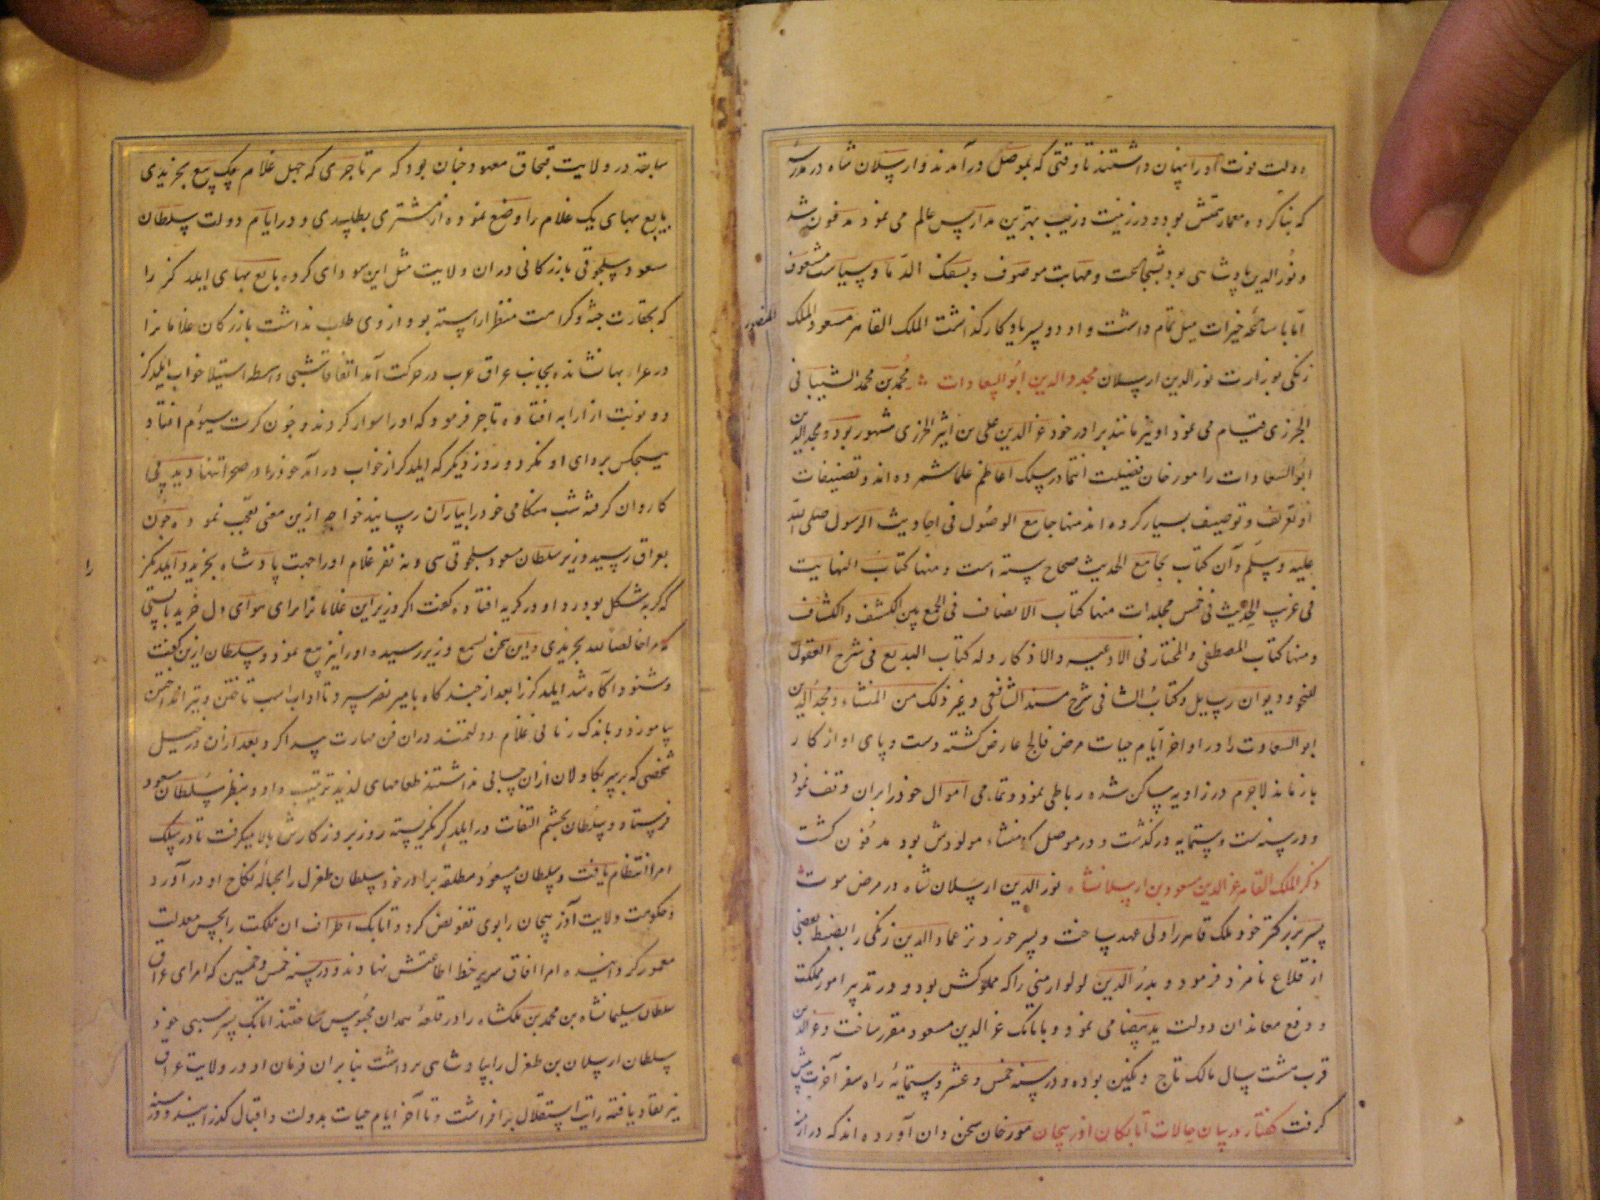 دولت فوت اورا پنهان داشتند تا وقتی که بموصل در آمدند و ارسلان شاه در مدرسهٔ
که بنا کرده معمار همتش بود و در زینت و زیب بهترین مدارس عالم می نمود مدفون شد
و نور الدین پادشاهی بود بشجاعت و مهابت موصوف و بسفک الدما و سیاست مشعوف
اما با سایحهٔ خیرات میل تمام داشت و او دو پسر یادگار گذاشت الملک القاهر مسعود و الملک
المنصور
زنگی بوزارت نور الدین ارسلان مجد والدین ابو السعادات محمد بن محمد الشیبانی
الجزری قیام می نمود او نیز مانند برادر خود عز الدین علی بن اثیر الجزری مشهور بود و مجد الدین
ابو السعادات را مورخان فضیلت انتما در سلک اعاظم علما شمرده اند و تصنیفات
او تعریف و توصیف بسیار کرده اند منها جامع الوصول فی احادیث الرسول صلی الله
علیه وسلم و آن کتاب بجامع الحدیث صحاح سته است و منها کتاب النهایت
فی غریب الحدیث فی خمس مجلدات منها کتاب الانصاف فی الجمع بین الکشف و الکشاف
و منها کتاب المصطفی و المختار فی الادعیه و الاذکار وله کتاب البدیع فی شرح العقول
للنحو و دیوان رسایل و کتاب الشافی شرح مسند الشافعی و غیر ذلک من المنشاء و مجد الدین
ابو السعادت را در اواخر ایام حیات مرض فالج عارض گشته دست و پای او از کار
باز ماند لاجرم در زاویه ساکن شده رباطی نمود و تمامی اموال خود را بران وقف نمود
و در سنه ست و ستمایه درگذشت و در موصل که منشاء مولودش بود مدفون گشت
ذکر الملک القاهر عز الدین مسعود بن ارسلانشاه نور الدین ارسلان شاه در مرض موت
پسر بزرگتر خود ملک قاهر را ولی عهد ساخت و پسر خورد تر عماد الدین زنگی را بضبط بعضی
از قلاع نامزد فرمود و بدر الدین لولو ارمنی را که مملوکش بود و در تدبیر امور مملکت
و دفع معاندان دولت ید بیضا می نمود و باتابکی عز الدین مسعود مقرر ساخت و عز الدین
قرب هشت سال مالک تاج و نگین بوده و در سنه خمس و عشر و ستمایه راه سفر آخرت پیش
گرفت گفتار در بیان حالات اتابکان اذربیجان مورخان سخن دان آورده اند که در ازمنهٔ
سابقه در ولایت قبچاق معهود چنان بود که هر تاجری که چهل غلام بیک بیع بخریدی
بایع بهای یک غلام را وضع نموده از مشتری نطلبیدی و در ایام دولت سلطان
مسعود سلجوقی بازرگانی دران ولایت مثل این سودای کرده بایع بهای ایلدکز را
که بحقارت جثه و کرامت منظر اراسته بود از وی طلب نداشت بازرگان غلامانرا
در عرابها نشانده بجانب عراق عرب در حرکت آمد اتفاقا شبی واسطه استیلا خواب ایلدکز
دو نوبت از ارابه افتاده تاجر فرمود که اورا سوار کردند و چون کرت سیوم افتاد
هیچکس پروای او نکرد و روز دیگر که ایلدکز از خواب در آمد خود را در صحرا تنها دید پی
کاروان گرفته شب هنگامی خود را بیاران رسانید خواجه ازین معنی تعجب نموده چون
بعراق رسید وزیر سلطان مسعود سلجوقی سی و نه نفر غلام او را جهت پادشاه بخرید و ایلدکز
را
که کریه شکل بود رد او در گریه افتاده گفت اگر وزیر این غلامانرا برای هوای دل خرید بایستی
که مرا خالصا لله بخریدی و این سخن بسمع وزیر رسیده اورا نیز بیع نمود و سلطان ازین گفت
و شنود اگاه شد ایلدکز را بعد از چندگاه بامیر نصر سپرد تا اداب اسب تاختن و تیر انداختن
بیاموزد و باندک زمانی غلام دولتمند دران فن مهارت پیدا کرد بعد ازان در خیل
شخصی که بر بکاولان ازان حسابی نداشتند طعامهای لذیذ ترتیب داد و بنظر سلطان مسعود
فرستاد و سلطان بچشم التفات در ایلدکز نگریسته روز بروز کارش بالا میگرفت تا در سلک
امرا انتظام یافت و سلطان مسعود مطلقه برادر خود سلطان طغرل را بحبالهٔ نکاح او در آورد
و حکومت ولایت آذربیجان را بوی تفویض کرد و اتابک اطراف ان مملکت را بحسن معدلت
معمور گردانیده امرا افاق سر بر خط اطاعتش نهادند و در سنه خمس و خمسین که امرای عراق
سلطان سلیمانشاه بن محمد بن ملکشاه را در قلعهٔ همدان محبوس ساختند اتابک پسر سببی خود
سلطان ارسلان بن طغرل را بپادشاهی برداشت بنابران فرمان او در ولایت عراق
نیز نفاذ یافته رایت استقلال بر افراشت و تا آخر ایام حیات بدولت و اقبال گذرانید و در سنه